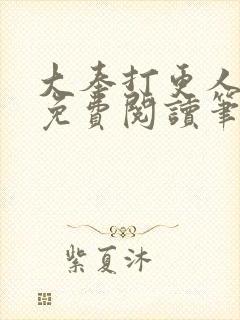 大秦打更人
免費閱讀筆
紫夏沐